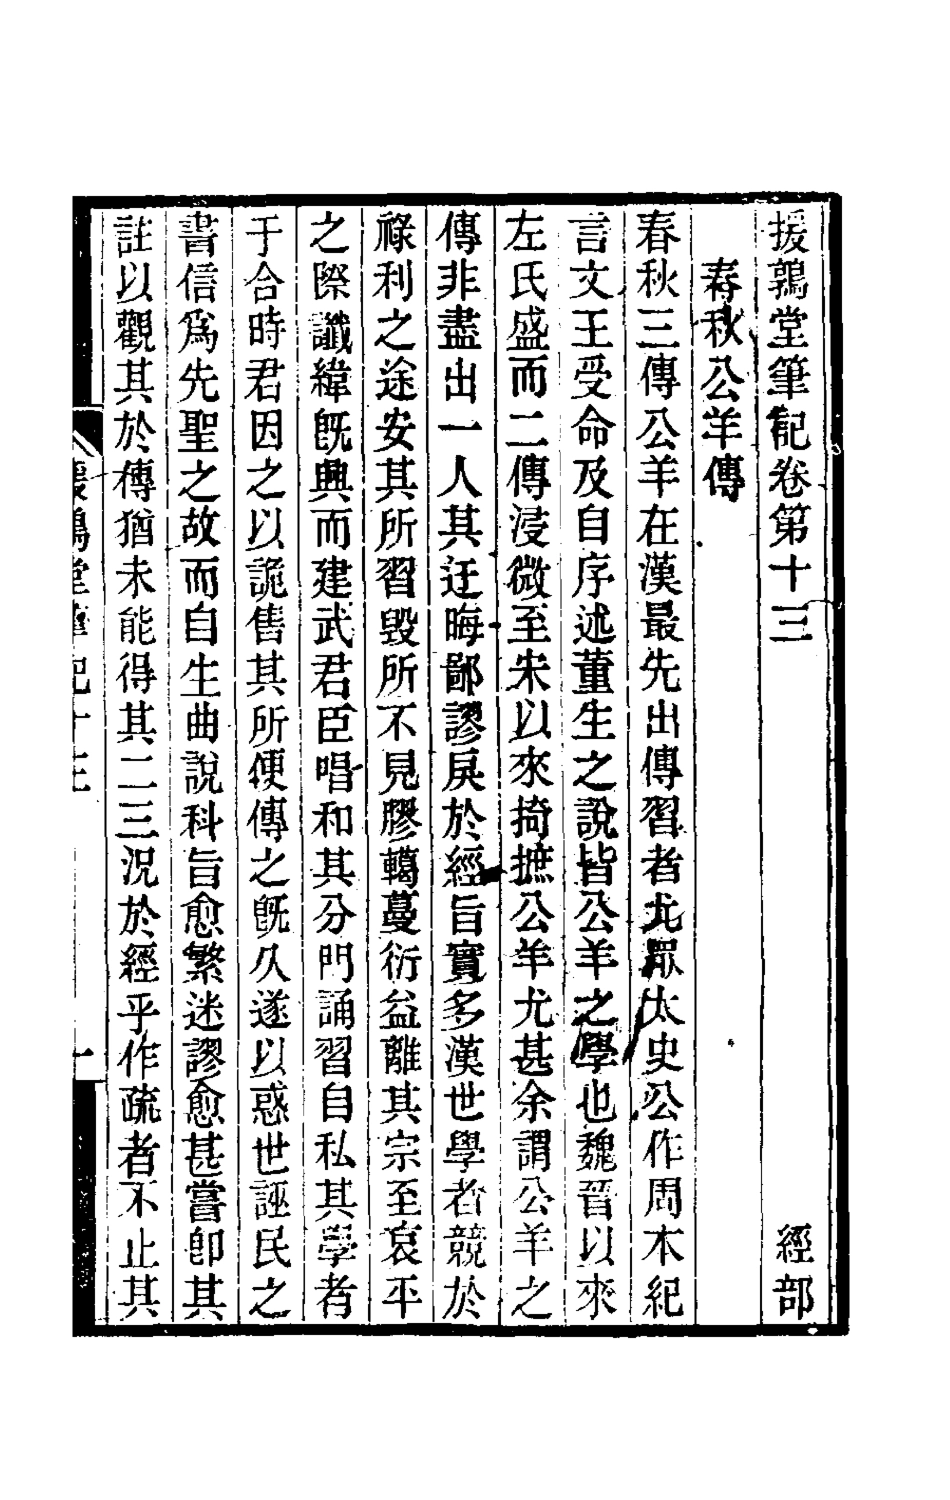 援鶉堂筆記卷第十三　經部
春秋公羊傳
春秋三傳公羊在漢最先出傳習者尤眾太史公作周本紀
言文王受命及自序述董生之說皆公羊之學也魏晉以來
左氏盛而二傳浸微至宋以來掎摭公羊尤甚余謂公羊之
傳非盡出一人其迂晦鄙謬戾於經旨實多漢世學者競於
祿利之途安其所習毀所不見膠轕蔓衍益離其宗至哀平
之際讖緯旣興而建武君臣唱和其分門誦習自私其學者
于合時君因之以詭售其所便傳之旣久遂以惑世誣民之
書信爲先聖之故而自生曲說科旨愈繁迷謬愈甚嘗卽其
註以觀其於傳猶未能得其二三況於經乎作疏者不止其
援鶉堂筆記十三　一